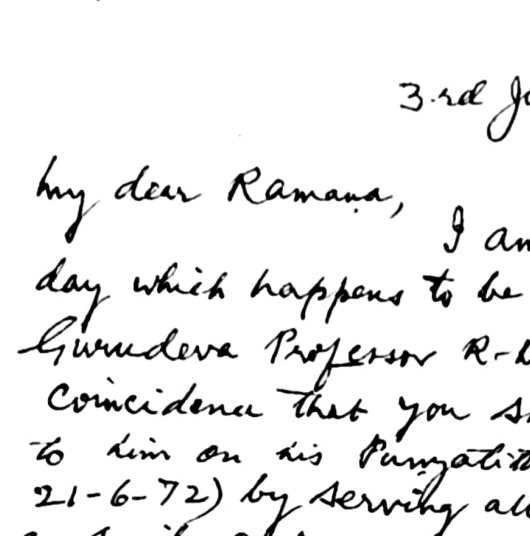 3rd
My dear Ramana,
I am
day which happens to be
Gurudeva Professor R-
Coincidence that you
to him on his Punyatit
21-6-72) by serving all